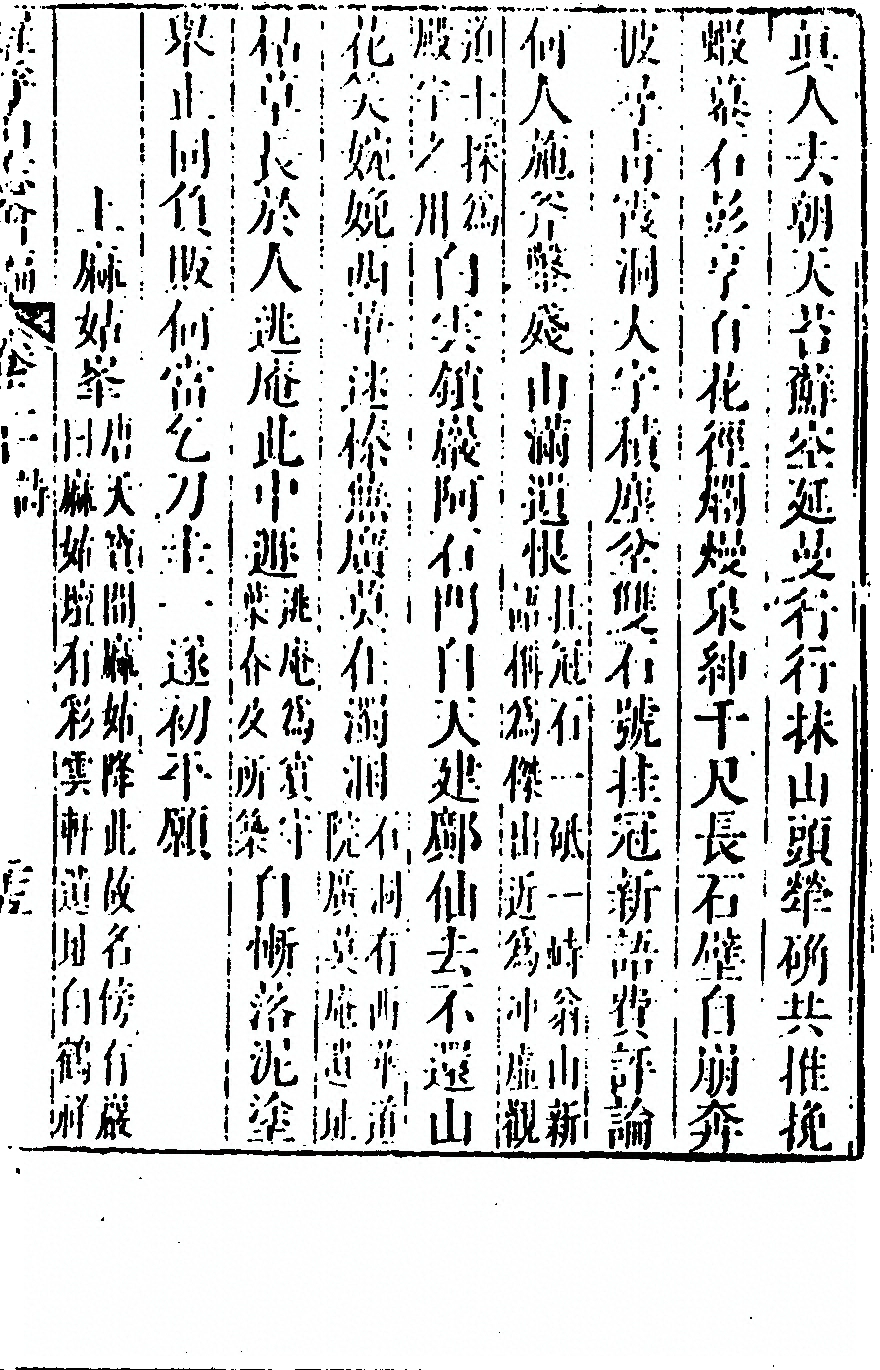 真人去朝天苔蘚空延蔓行行抹山頭犖确共推挽
蝦蟇石彭亨百花徑爛熳泉紳千尺長石壁自崩奔
披尋青霞洞大字積塵坌雙石號挂冠新語費評論
何人施斧鑿殘山滿遺恨
挂冠石一砥一峙翁山新
語稱為傑出近為冲虛觀
道士採為
殿宇之用
白雲鎖巖阿石門自天建鄺仙去不還山
花笑婉娩西華迷榛蕪廣莫任濁溷
石洞有西華道
院廣莫庵遺址
枯草長於人逃庵此中遯
逃庵為賓守
葉春及所築
自慚落泥塗
舉止同負販何當乞刀圭一遂初平願
上麻姑峯
唐天寶間麻姑降此故名傍有巖
曰麻姑壇有彩雲軒遺址白鶴祥
卷二詩